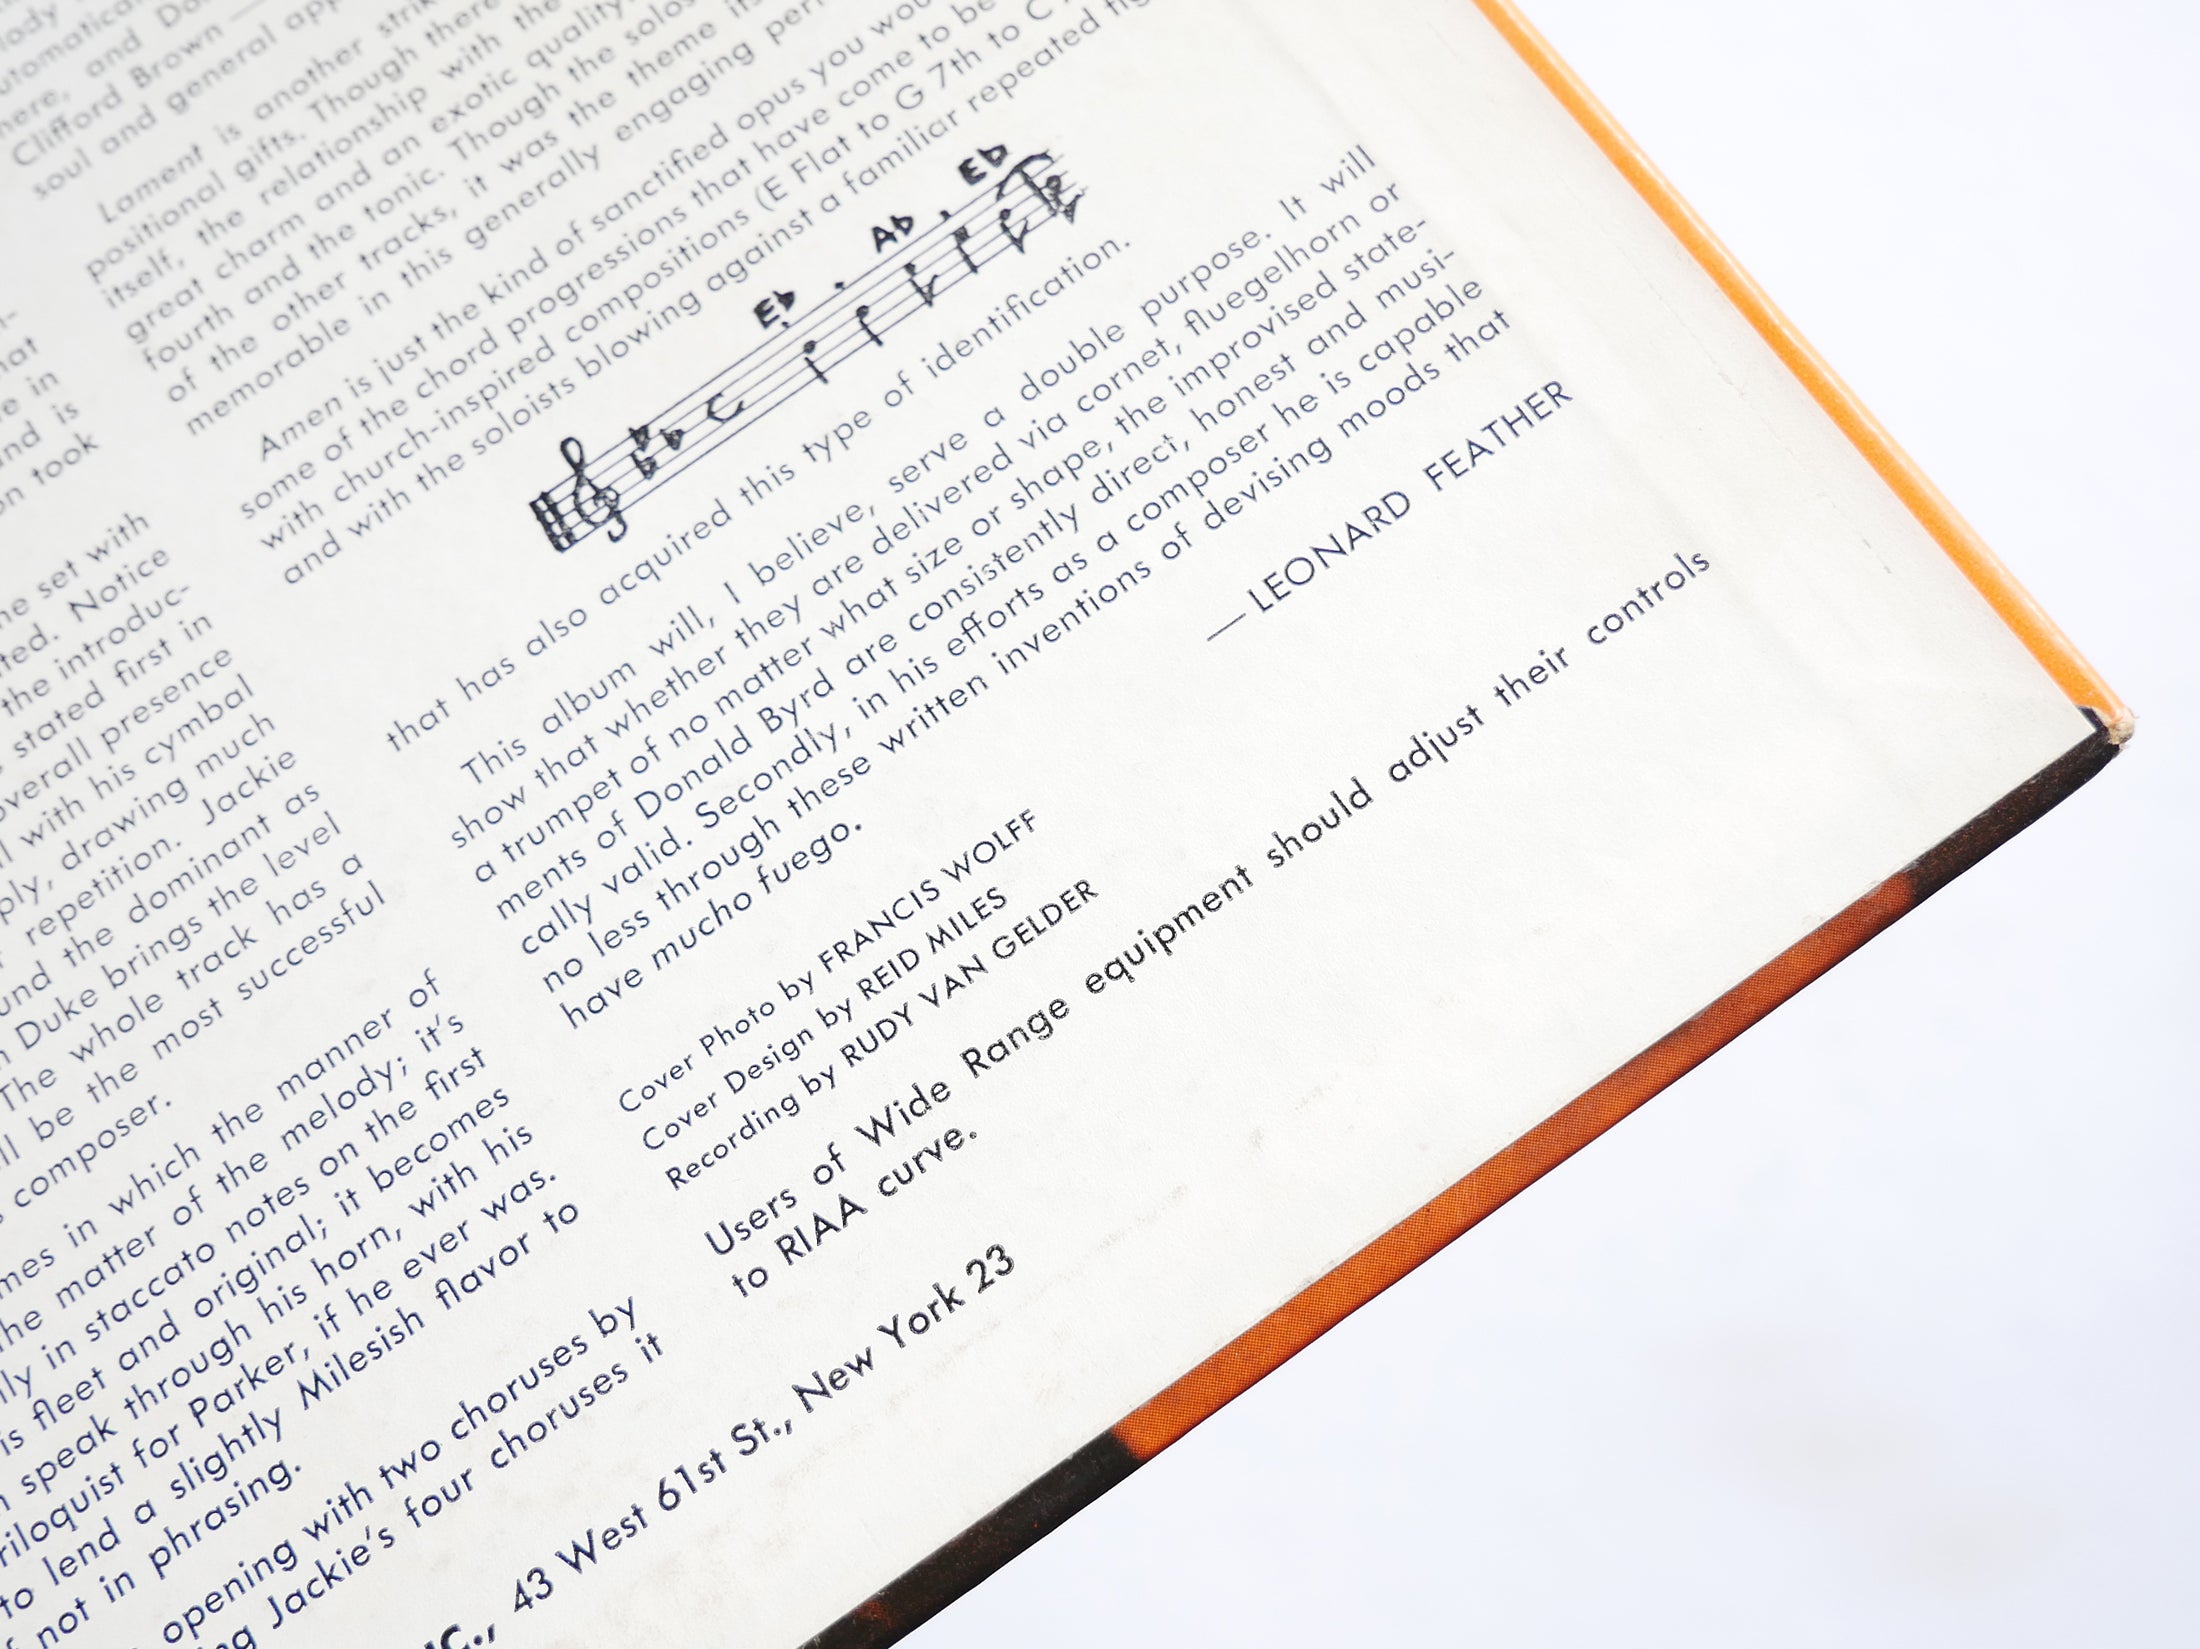 lody
utomatical
here, and Do
Clifford Brown —
soul and general app
Lament is another strik
positional gifts. Though there
itself, the relationship with the
great charm and an exotic quality.
fourth and the tonic. Though the solos
of the other tracks, it was the theme its
memorable in this generally engaging per
Amen is just the kind of sanctified opus you wou
some of the chord progressions that have come to be
with church-inspired compositions (E Flat to G 7th to C
and with the soloists blowing against a familiar repeated fig
Eb Ab Eb
that has also acquired this type of identification.
This album will, I believe, serve a double purpose. It will
show that whether they are delivered via cornet, fluegelhorn or
a trumpet of no matter what size or shape, the improvised state-
ments of Donald Byrd are consistently direct, honest and musi-
cally valid. Secondly, in his efforts as a composer he is capable
no less through these written inventions of devising moods that
have mucho fuego.
— LEONARD FEATHER
Cover Photo by FRANCIS WOLFF
Cover Design by REID MILES
Recording by RUDY VAN GELDER
Users of Wide Range equipment should adjust their controls
to RIAA curve.
n-
hat
e in
and is
on took
ne set with
ted. Notice
the introduc-
s stated first in
overall presence
ll with his cymbal
ply, drawing much
r repetition. Jackie
und the dominant as
n Duke brings the level
The whole track has a
ll be the most successful
s composer.
mes in which the manner of
he matter of the melody; it's
lly in staccato notes on the first
is fleet and original; it becomes
n speak through his horn, with his
riloquist for Parker, if he ever was.
to lend a slightly Milesish flavor to
f not in phrasing.
opening with two choruses by
ng Jackie's four choruses it
NC., 43 West 61st St., New York 23